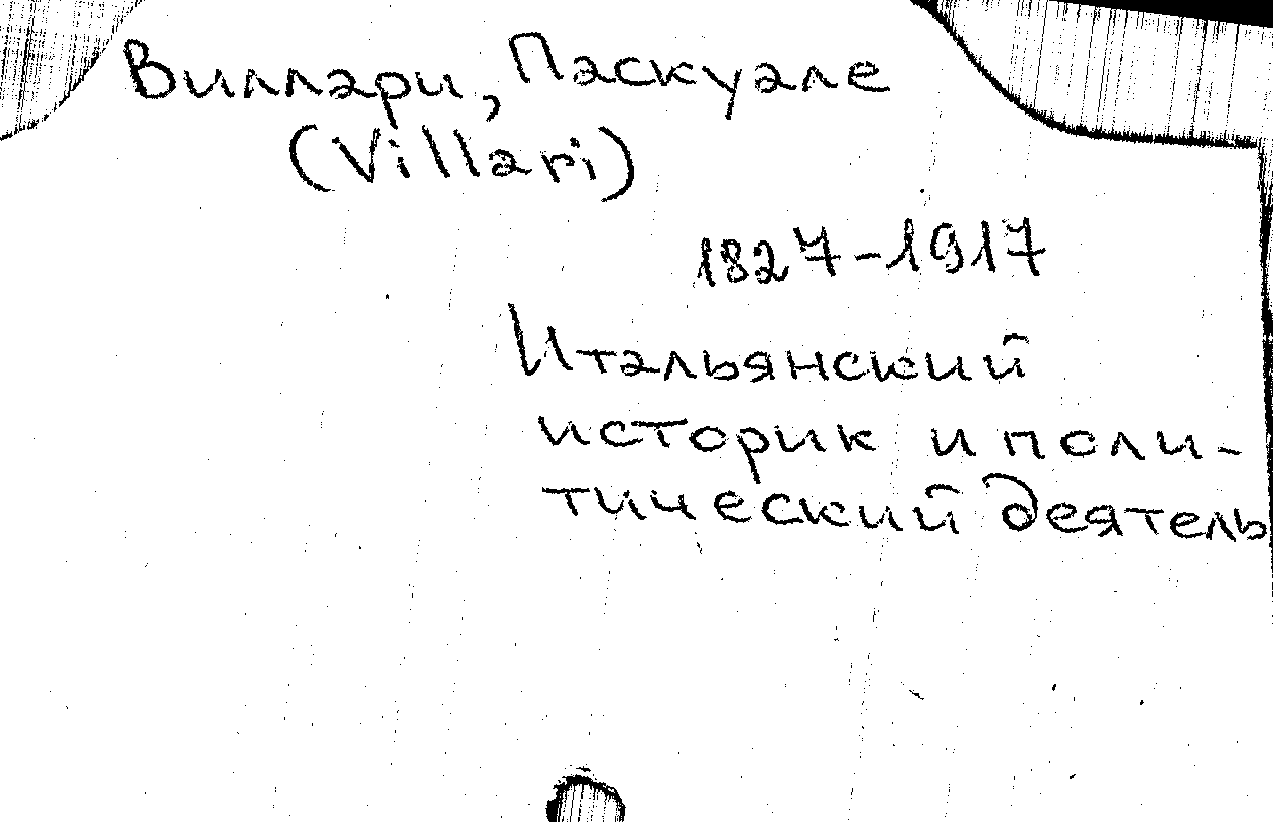 Виллари, Паскуале
(Villari)
1827-1917
Итальянский
историк и поли-
тический деятель